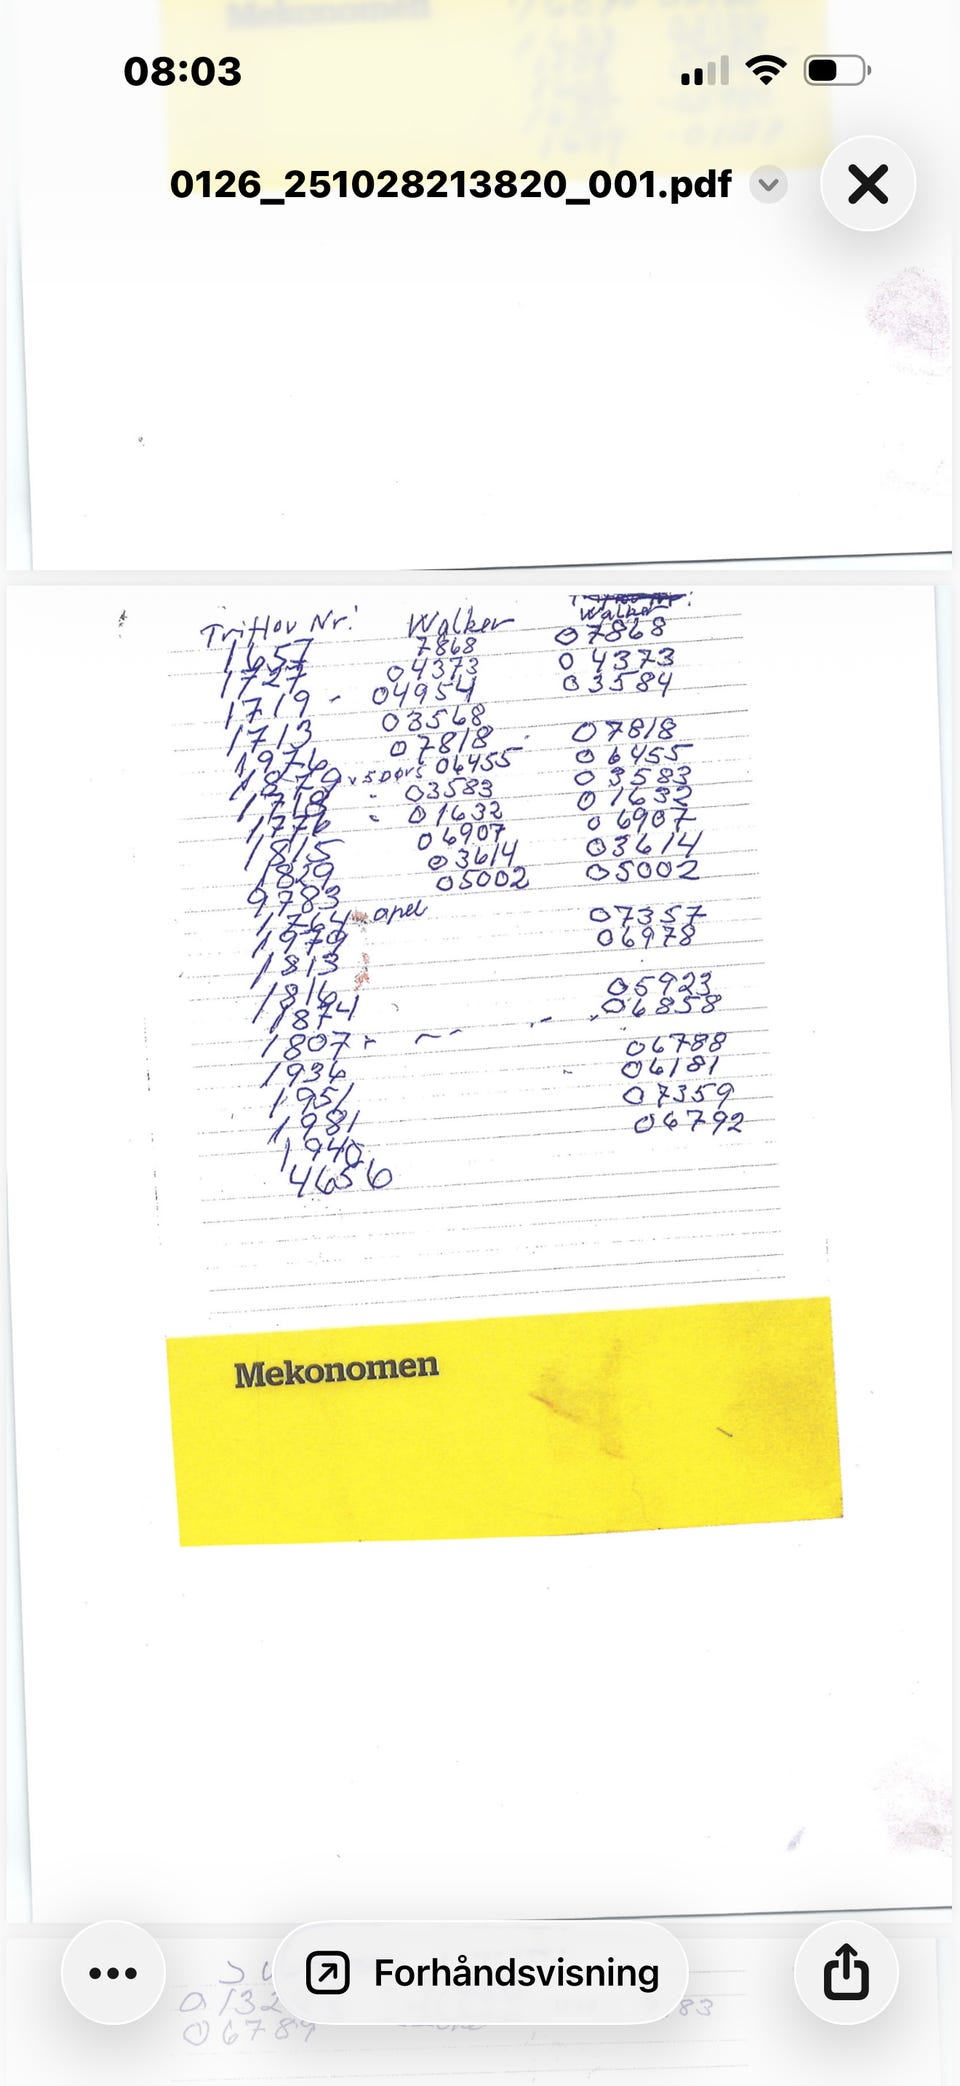 Mekonomen
08:03
0126_251028213820_001.pdf
Triflov Nr: Walker Walker
1657 7868 07868
1727 04373 04373
1719 - 04954 03584
1713 03568
1976 07818 - 07818
1879 06455 06455
1718 - 03583 03583
1776 - 01632 01632
1815 06907 06907
1829 03614 03614
9783 05002 05002
1764 apel
1979 07357
1813 06978
1816
1874 05923
1807 06858
1936 06788
1951 06181
1981 07359
1940 06792
4656
Mekonomen
0132 83
06789
Forhåndsvisning